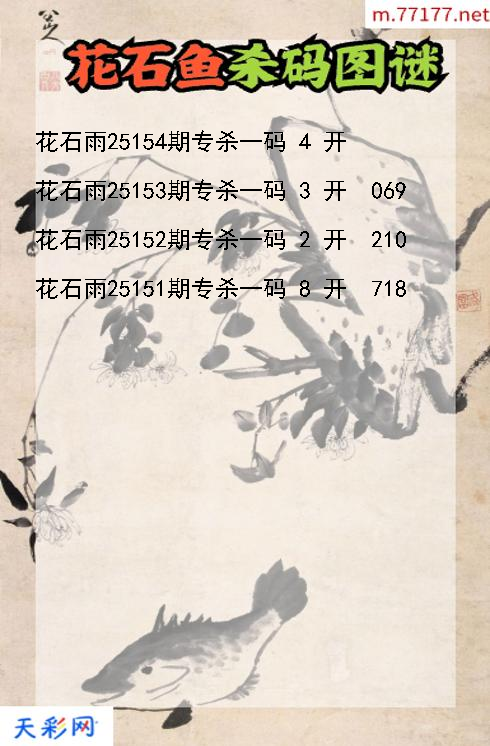 m.77177.net
八
花石鱼杀码图谜
花石雨25154期专杀一码 4 开
花石雨25153期专杀一码 3 开 069
花石雨25152期专杀一码 2 开 210
花石雨25151期专杀一码 8 开 718
天彩网